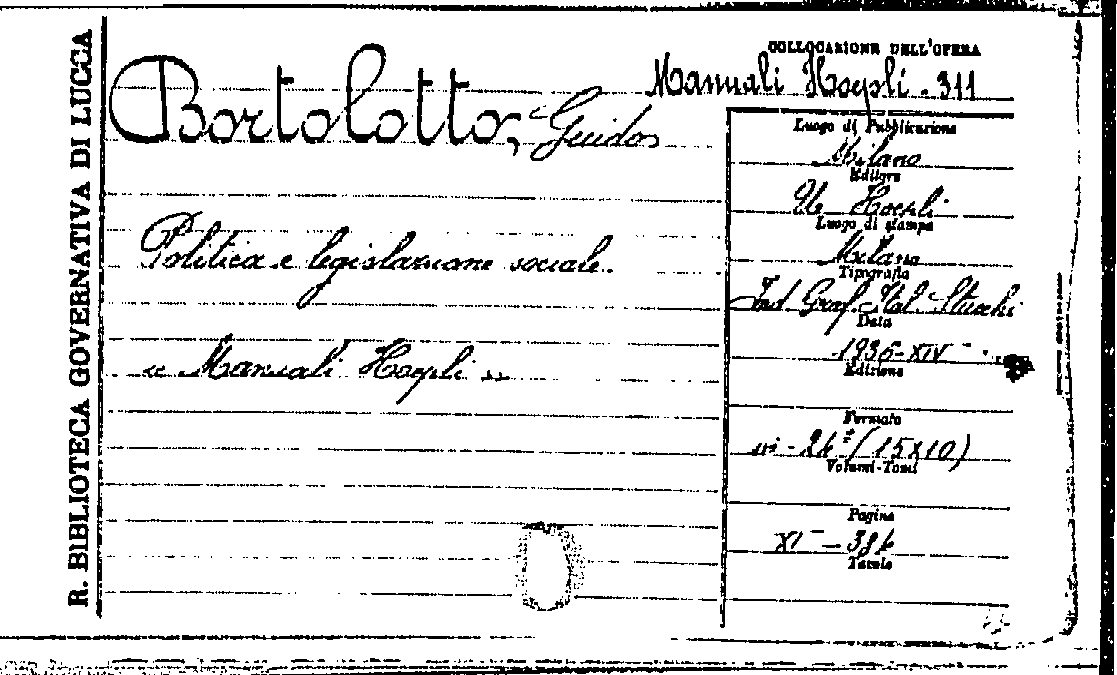 R. BIBLIOTECA GOVERNATIVA DI LUCCA
COLLOCAZIONE DELL'OPERA
Manuali Hoepli - 311
Bortolotto, Guido
Politica e legislazione sociale.
« Manuali Hoepli »
Luogo di Pubblicazione
Milano
Editore
U. Hoepli
Luogo di stampa
Milano
Tipografia
Ind. Graf. Ital. Stucchi
Data
1936-XIV
Edizione
Formato
(15x10)
Volumi-Tomi
Pagine
XI - 386
Tavole